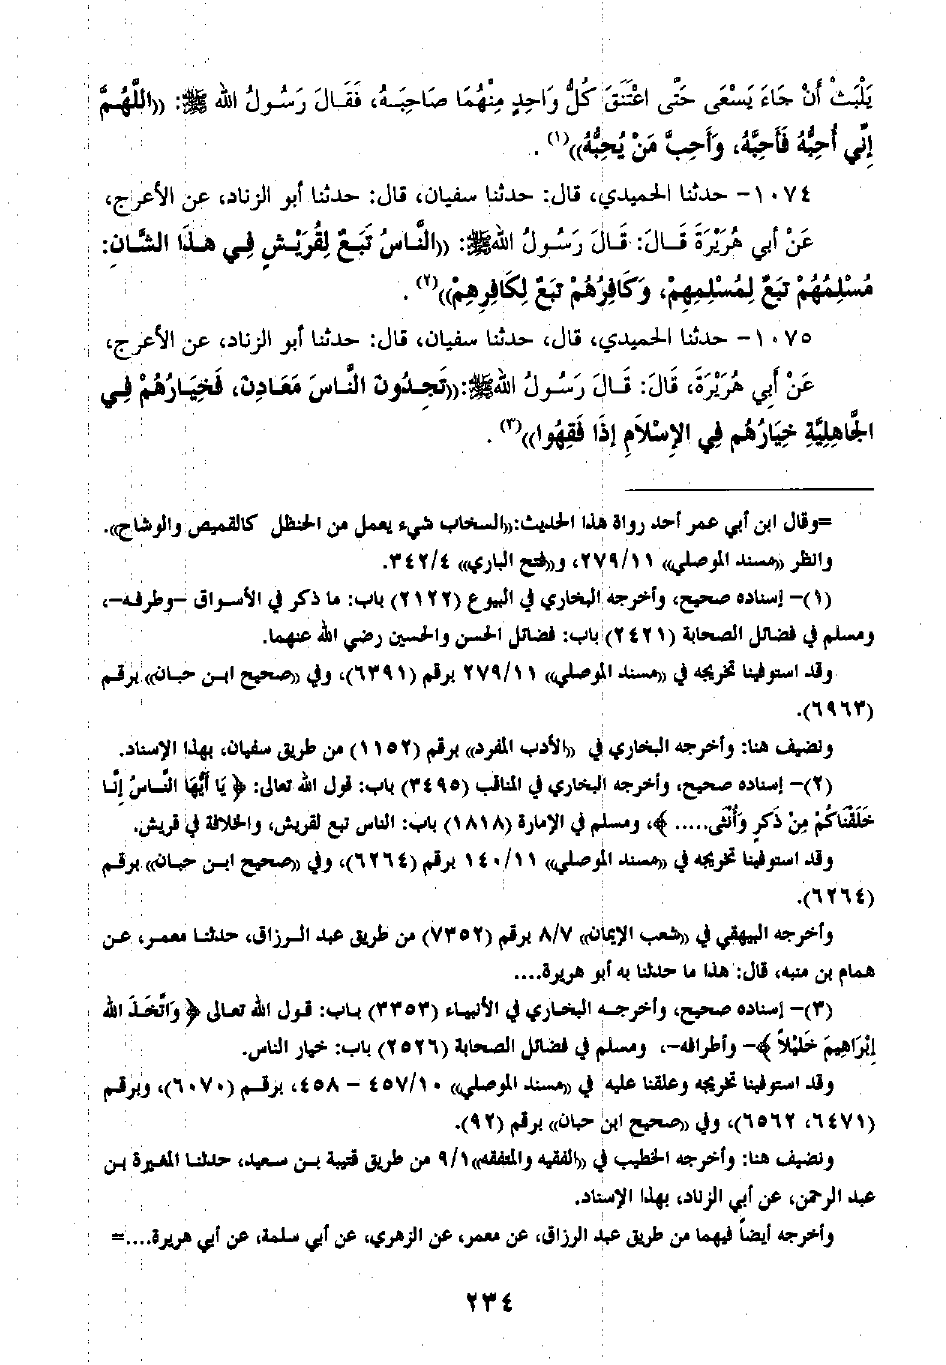 يَلْبَثْ أَنْ جَاءَ يَسْعَى حَتَّى اعْتَنَقَ كُلُّ وَاحِدٍ مِنْهُمَا صَاحِبَهُ، فَقَالَ رَسُولُ الله ﷺ: ((اللَّهُمَّ
إِنِّي أُحِبُّهُ فَأَحِبَّهُ، وَأَحِبَّ مَنْ يُحِبُّهُ))(١) .
١٠٧٤- حدثنا الحميدي، قال: حدثنا سفيان، قال: حدثنا أبو الزناد، عن الأعرج،
عَنْ أبي هُرَيْرَةَ قَالَ: قَالَ رَسُولُ اللهﷺ: ((النَّاسُ تَبَعٌ لِقُرَيْشٍ فِي هذَا الشَّانِ:
مُسْلِمُهُمْ تَبَعٌ لِمُسْلِمِهِمْ، وَكَافِرُهُمْ تَبَعٌ لِكَافِرِهِمْ))(٢) .
١٠٧٥- حدثنا الحميدي، قال، حدثنا سفيان، قال: حدثنا أبو الزناد، عن الأعرج،
عَنْ أَبِي هُرَيْرَةَ، قَالَ: قَالَ رَسُولُ اللهﷺ:((تَجِدُونَ النَّاسَ مَعَادِنَ، فَخِيَارُهُمْ فِي
الجَاهِلِيَّةِ خِيَارُهُم فِي الإِسْلاَمِ إِذَا فَقِهُوا))(٣) .
=وقال ابن أبي عمر أحد رواة هذا الحديث:((السخاب شيء يعمل من الحنظل كالقميص والوشاح)).
وانظر ((مسند الموصلي)) ٢٧٩/١١، و((فتح الباري)) ٣٤٢/٤.
(١)- إسناده صحيح، وأخرجه البخاري في البيوع (٢١٢٢) باب: ما ذكر في الأسواق -وطرفه-،
ومسلم في فضائل الصحابة (٢٤٢١) باب: فضائل الحسن والحسين رضي الله عنهما.
وقد استوفينا تخريجه في ((مسند الموصلي)) ٢٧٩/١١ برقم (٦٣٩١)، وفي ((صحيح ابن حبان)) برقم
(٦٩٦٣).
ونضيف هنا: وأخرجه البخاري في ((الأدب المفرد)) برقم (١١٥٢) من طريق سفيان، بهذا الإسناد.
(٢)- إسناده صحيح، وأخرجه البخاري في المناقب (٣٤٩٥) باب: قول الله تعالى: ﴿ يَا أَيُّهَا النَّاسُ إِنَّا
خَلَقْنَاكُمْ مِنْ ذَكَرٍ وَأُنْثَى..... ﴾، ومسلم في الإمارة (١٨١٨) باب: الناس تبع لقريش، والخلافة في قريش.
وقد استوفينا تخريجه في ((مسند الموصلي)) ١٤٠/١١ برقم (٦٢٦٤)، وفي ((صحيح ابن حبان)) برقم
(٦٢٦٤).
وأخرجه البيهقي في ((شعب الإيمان)) ٨/٧ برقم (٧٣٥٢) من طريق عبد الرزاق، حدثنا معمر، عن
همام بن منبه، قال: هذا ما حدثنا به أبو هريرة....
(٣)- إسناده صحيح، وأخرجه البخاري في الأنبياء (٣٣٥٣) باب: قول الله تعالى ﴿ وَاتَّخَذَ الله
إِبْرَاهِيمَ خَلِيْلاً ﴾- وأطرافه-، ومسلم في فضائل الصحابة (٢٥٢٦) باب: خيار الناس.
وقد استوفينا تخريجه وعلقنا عليه في ((مسند الموصلي)) ٤٥٧/١٠ - ٤٥٨، برقم (٦٠٧٠)، وبرقم
(٦٤٧١، ٦٥٦٢)، وفي ((صحيح ابن حبان)) برقم (٩٢).
ونضيف هنا: وأخرجه الخطيب في ((الفقيه والمتفقه))٩/١ من طريق قتيبة بن سعيد، حدثنا المغيرة بن
عبد الرحمن، عن أبي الزناد، بهذا الإسناد.
وأخرجه أيضاً فيهما من طريق عبد الرزاق، عن معمر، عن الزهري، عن أبي سلمة، عن أبي هريرة....=
٢٣٤